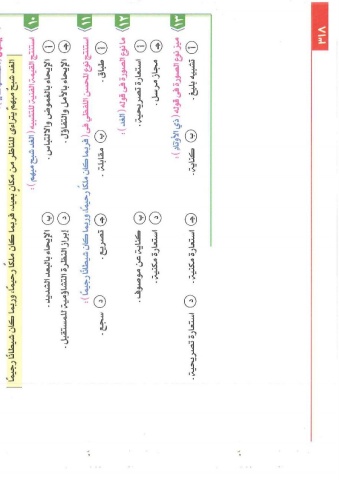 ٣١٨
الغد شبح مبهم يتراءى للناظر من مكان بعيد، فربما كان ملكا رحيما، وربما كان شيطانًا رجيماً
١٠ استنتج القيمة الفنية للتشبيه ( الغد شبح مبهم ) :
أ الإيحاء بالغموض والالتباس . ب الإيحاء بالبعد الشديد .
ج الإيحاء بالأمل والتفاؤل . د إبراز النظرة التشاؤمية للمستقبل .
١١ استنتج نوع المحسن اللفظي في ( فربما كان ملكا رحيما، وربما كان شيطانًا رجيماً ) :
أ طباق . ب مقابلة . ج تصريع . د سجع .
١٢ ما نوع الصورة في قوله ( الغد ) :
أ استعارة تصريحية . ب كناية عن موصوف .
ج مجاز مرسل . د استعارة مكنية .
١٣ ميز نوع الصورة في قوله ( ذي الأوتاد ) :
أ تشبيه بليغ . ب كناية . ج استعارة مكنية . د استعارة تصريحية .